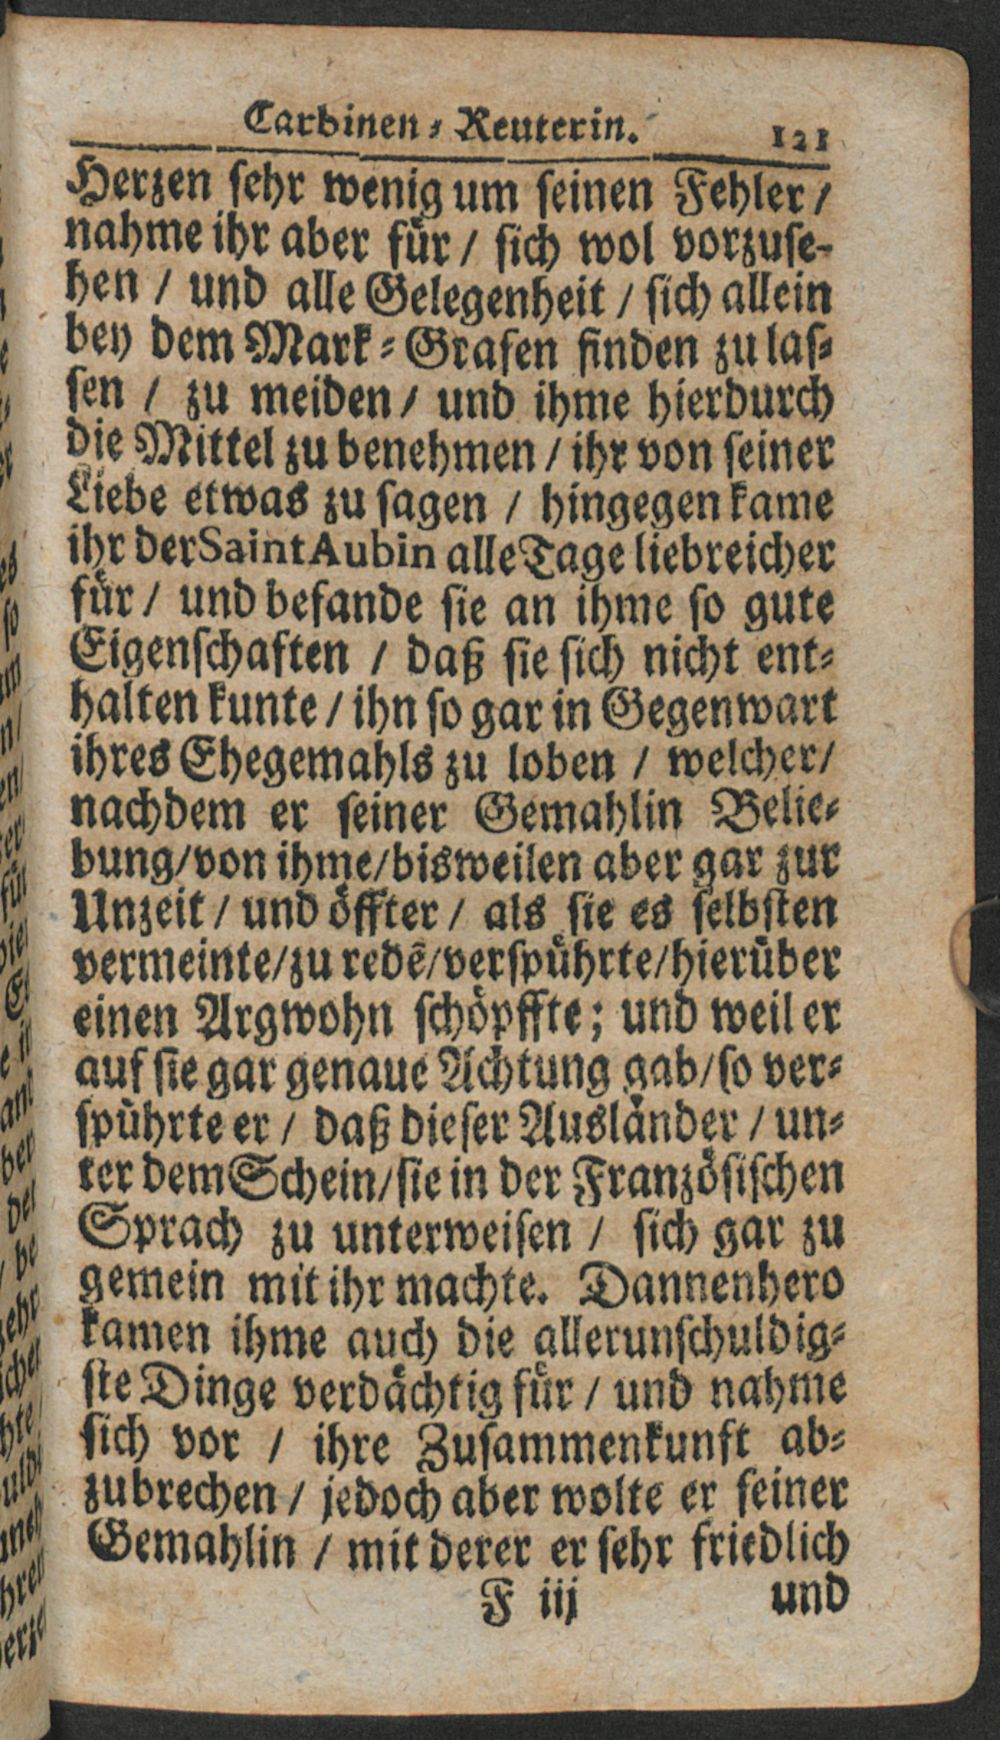 Carbinen-Reuterin. 121
Herzen sehr wenig um seinen Fehler /
nahme ihr aber für / sich wol vorzuse-
hen / und alle Gelegenheit / sich allein
bey dem Mark-Grafen finden zu las-
sen / zu meiden / und ihme hierdurch
die Mittel zu benehmen / ihr von seiner
Liebe etwas zu sagen / hingegen kame
ihr der Saint Aubin alle Tage liebreicher
für / und befande sie an ihme so gute
Eigenschaften / daß sie sich nicht ent-
halten kunte / ihn so gar in Gegenwart
ihres Ehegemahls zu loben / welcher /
nachdem er seiner Gemahlin Belie-
bung / von ihme / bisweilen aber gar zur
Unzeit / und öffter / als sie es selbsten
vermeinte / zu redē / verspührte / hierüber
einen Argwohn schöpffte; und weil er
auf sie gar genaue Achtung gab / so ver-
spührte er / daß dieser Ausländer / un-
ter dem Schein / sie in der Französischen
Sprach zu unterweisen / sich gar zu
gemein mit ihr machte. Dannenhero
kamen ihme auch die allerunschuldig-
ste Dinge verdächtig für / und nahme
sich vor / ihre Zusammenkunft ab-
zubrechen / jedoch aber wolte er seiner
Gemahlin / mit derer er sehr friedlich
F iij und